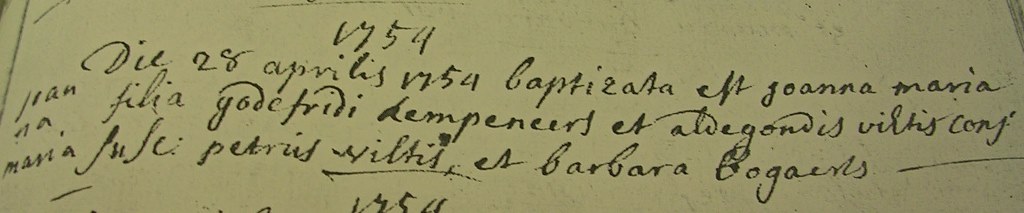 1754
Die 28 aprilis 1754 baptizata est joanna maria
joan
filia godefridi Lempeneers et aldegondis viltis conj
na
maria susc: petrus viltis, et barbara Bogaerts
1754